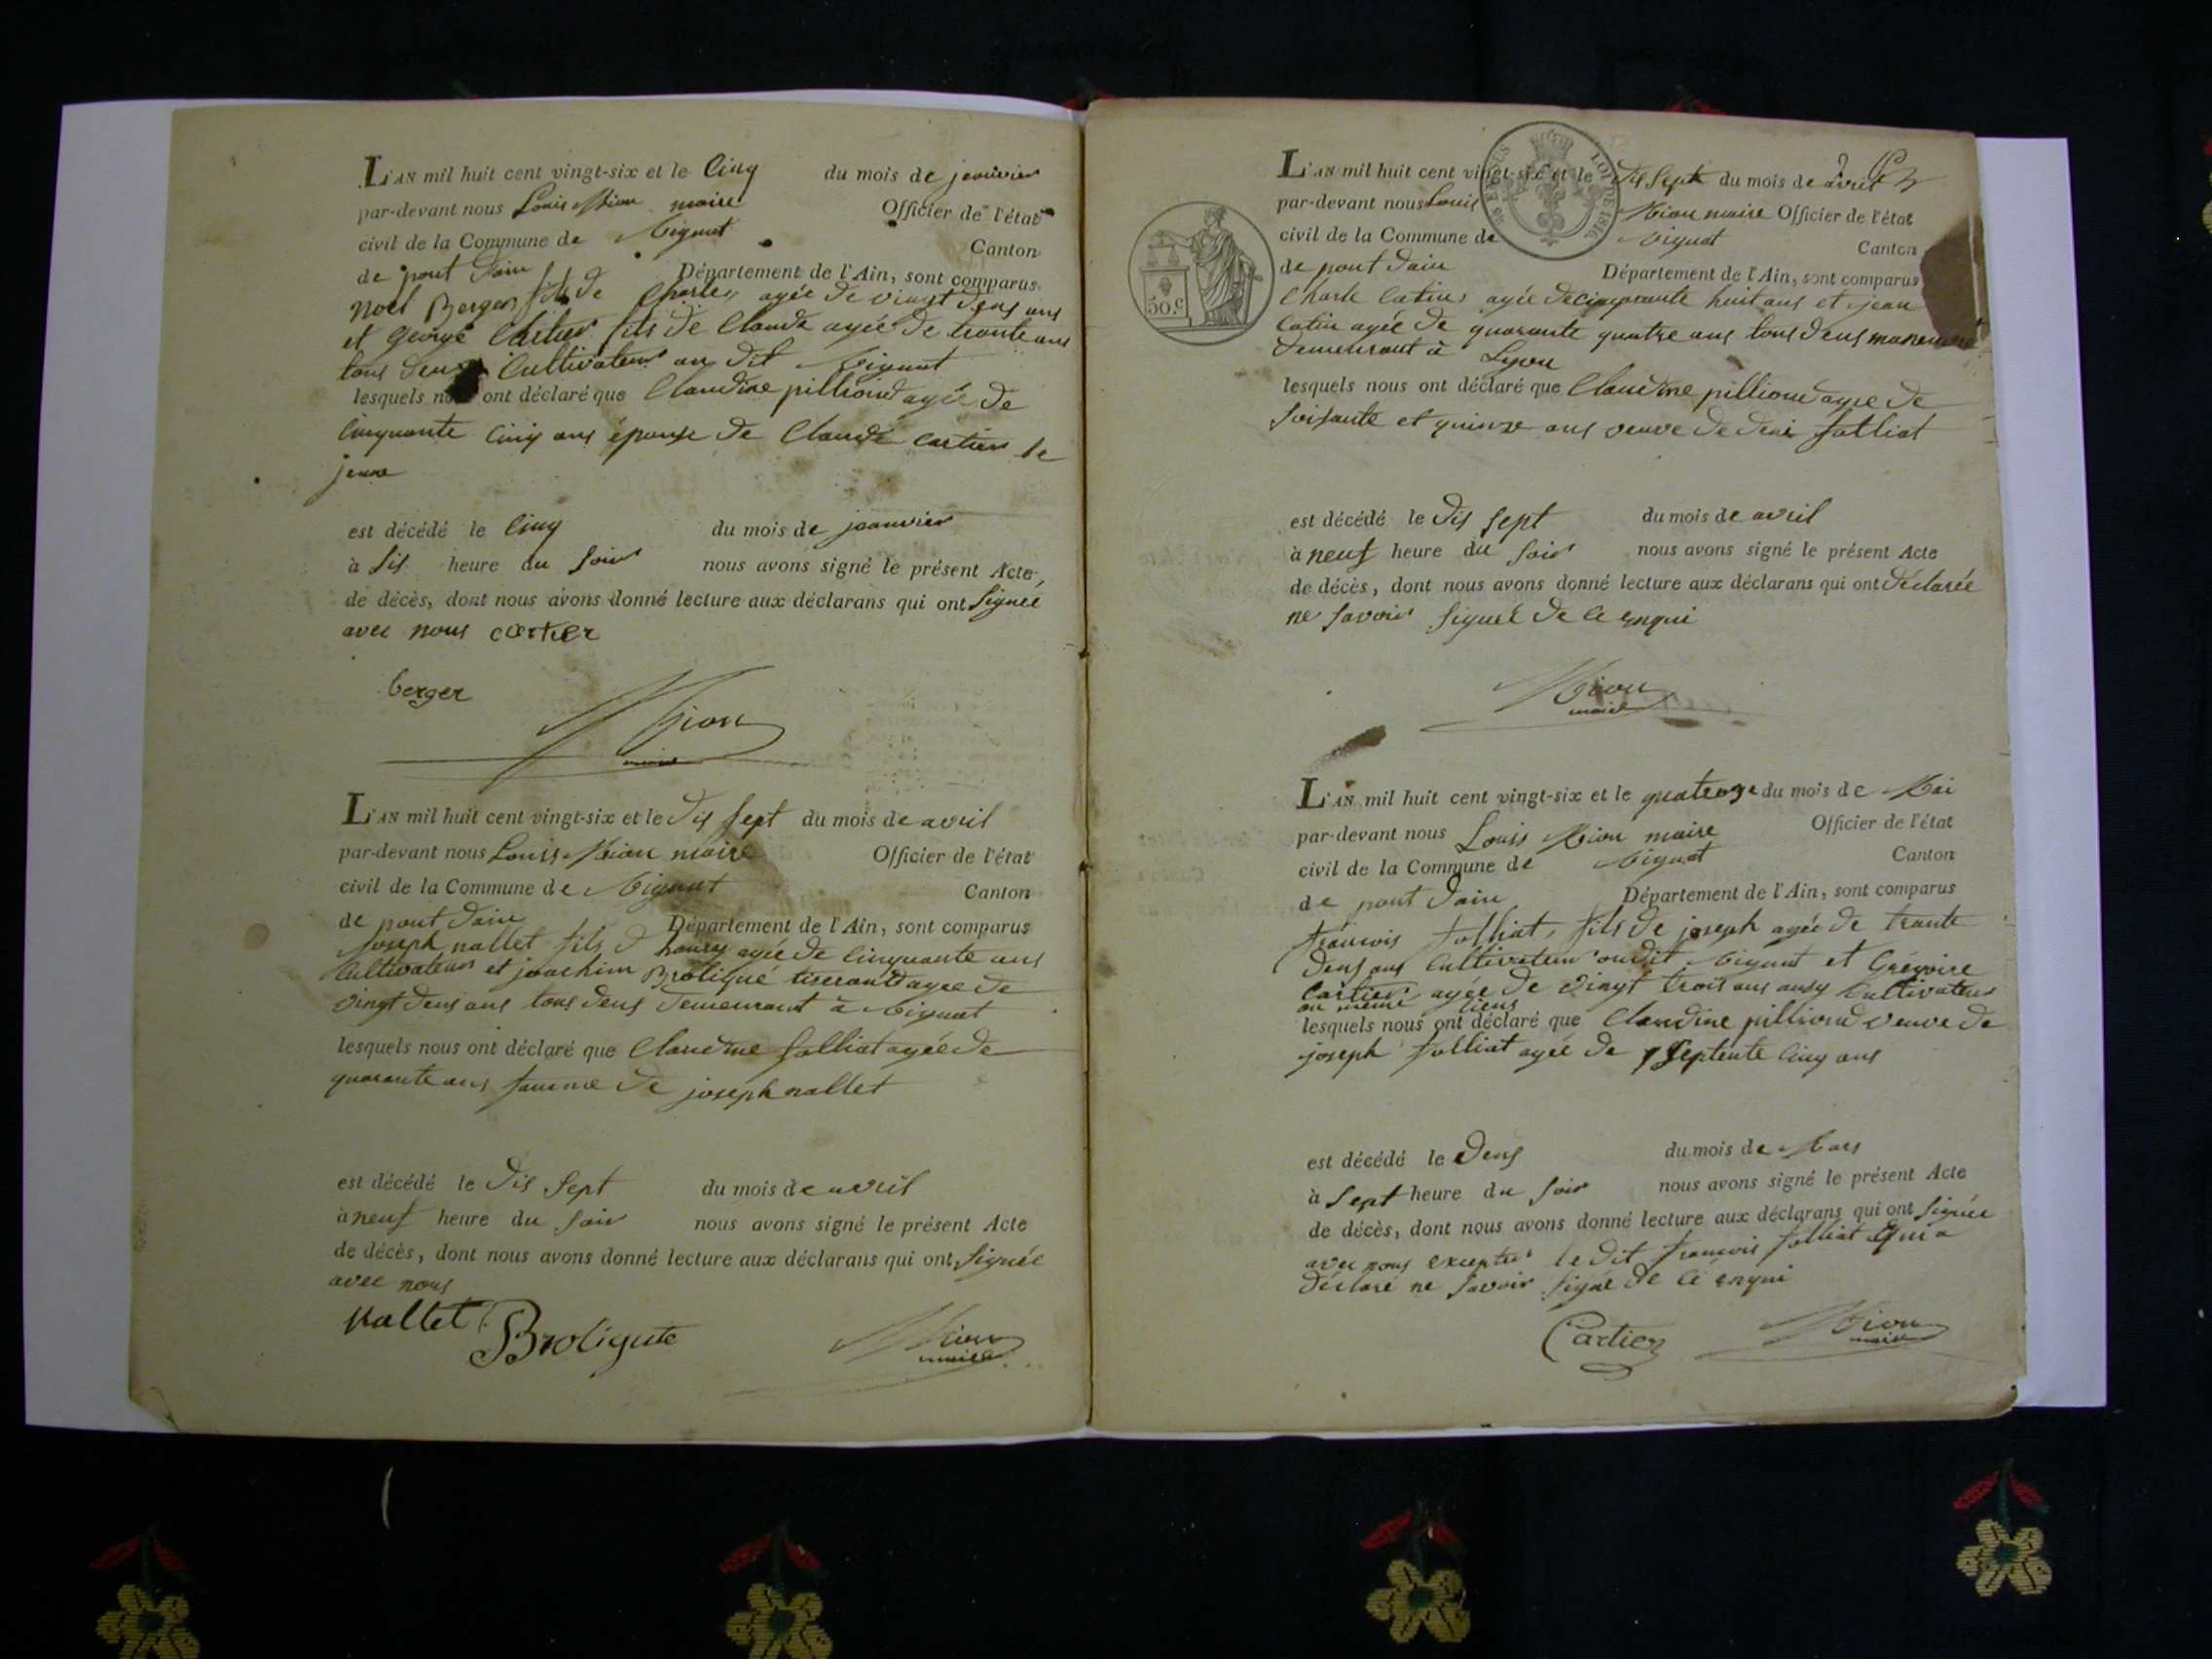 L'AN mil huit cent vingt-six et le cinq du mois de jeanvier
par-devant nous Louis Mion maire Officier de l'état
civil de la Commune de Mignat Canton
de pont Dain Département de l'Ain, sont comparus
noel Berger fils de Charles agée de vingt deus ans
et george Cartier fils de Claude agée de trante ans
tous deus Cultivateur au dit Mignat
lesquels nous ont déclaré que Claudine pilliond agée de
cinquante cinq ans épouse de Claude Cartier le
jeune
est décédé le cinq du mois de jeanvier
à sis heure du soir nous avons signé le présent Acte
de décès, dont nous avons donné lecture aux déclarans qui ont signée
avec nous cartier
berger
Mion
maire
L'AN mil huit cent vingt-six et le dis sept du mois de avril
par-devant nous Louis Mion maire Officier de l'état
civil de la Commune de Mignat Canton
de pont Dain Département de l'Ain, sont comparus
joseph nallet fils d'hanry agée de cinquante ans
Cultivateur et joachim Broliqué tiserand agee de
vingt deus ans tous deus demeurant à Mignat
lesquels nous ont déclaré que Claudine folliat agée de
quarante ans famme de joseph nallet
est décédé le dis sept du mois de avril
à neuf heure du soir nous avons signé le présent Acte
de décès, dont nous avons donné lecture aux déclarans qui ont signée
avec nous
Nallet Broliqute Mion
maire
L'AN mil huit cent vingt-six et le dis sept du mois de avril
par-devant nous Louis Mion maire Officier de l'état
civil de la Commune de Mignat Canton
de pont Dain Département de l'Ain, sont comparus
Charle Catin agée de cinquante huit ans et jean
Catin agée de quarante quatre ans tous deus
demeurant à Lyon
lesquels nous ont déclaré que Claudine pilliond agee de
soisante et quinze ans veuve de deni folliat
est décédé le dis sept du mois de avril
à neuf heure du soir nous avons signé le présent Acte
de décès, dont nous avons donné lecture aux déclarans qui ont déclarée
ne savoir signée de ce enqui
Mion
maire
50.c
LOI DE 1816
L'AN mil huit cent vingt-six et le quatorze du mois de Mai
par-devant nous Louis Mion maire Officier de l'état
civil de la Commune de Mignat Canton
de pont Dain Département de l'Ain, sont comparus
francois folliat, fils de joseph agée de trante
deus ans Cultivateur oudit Mignat et Grégoire
Cartier agée de vingt trois ans ausy Cultivateur
au meme lieus
lesquels nous ont déclaré que Claudine pilliond veuve de
joseph folliat agée de septente cinq ans
est décédé le deus du mois de Mars
à sept heure du soir nous avons signé le présent Acte
de décès, dont nous avons donné lecture aux déclarans qui ont signée
avec nous excepter le dit francois folliat qui a
déclaré ne savoir signé de ce enqui
Cartier Mion
maire